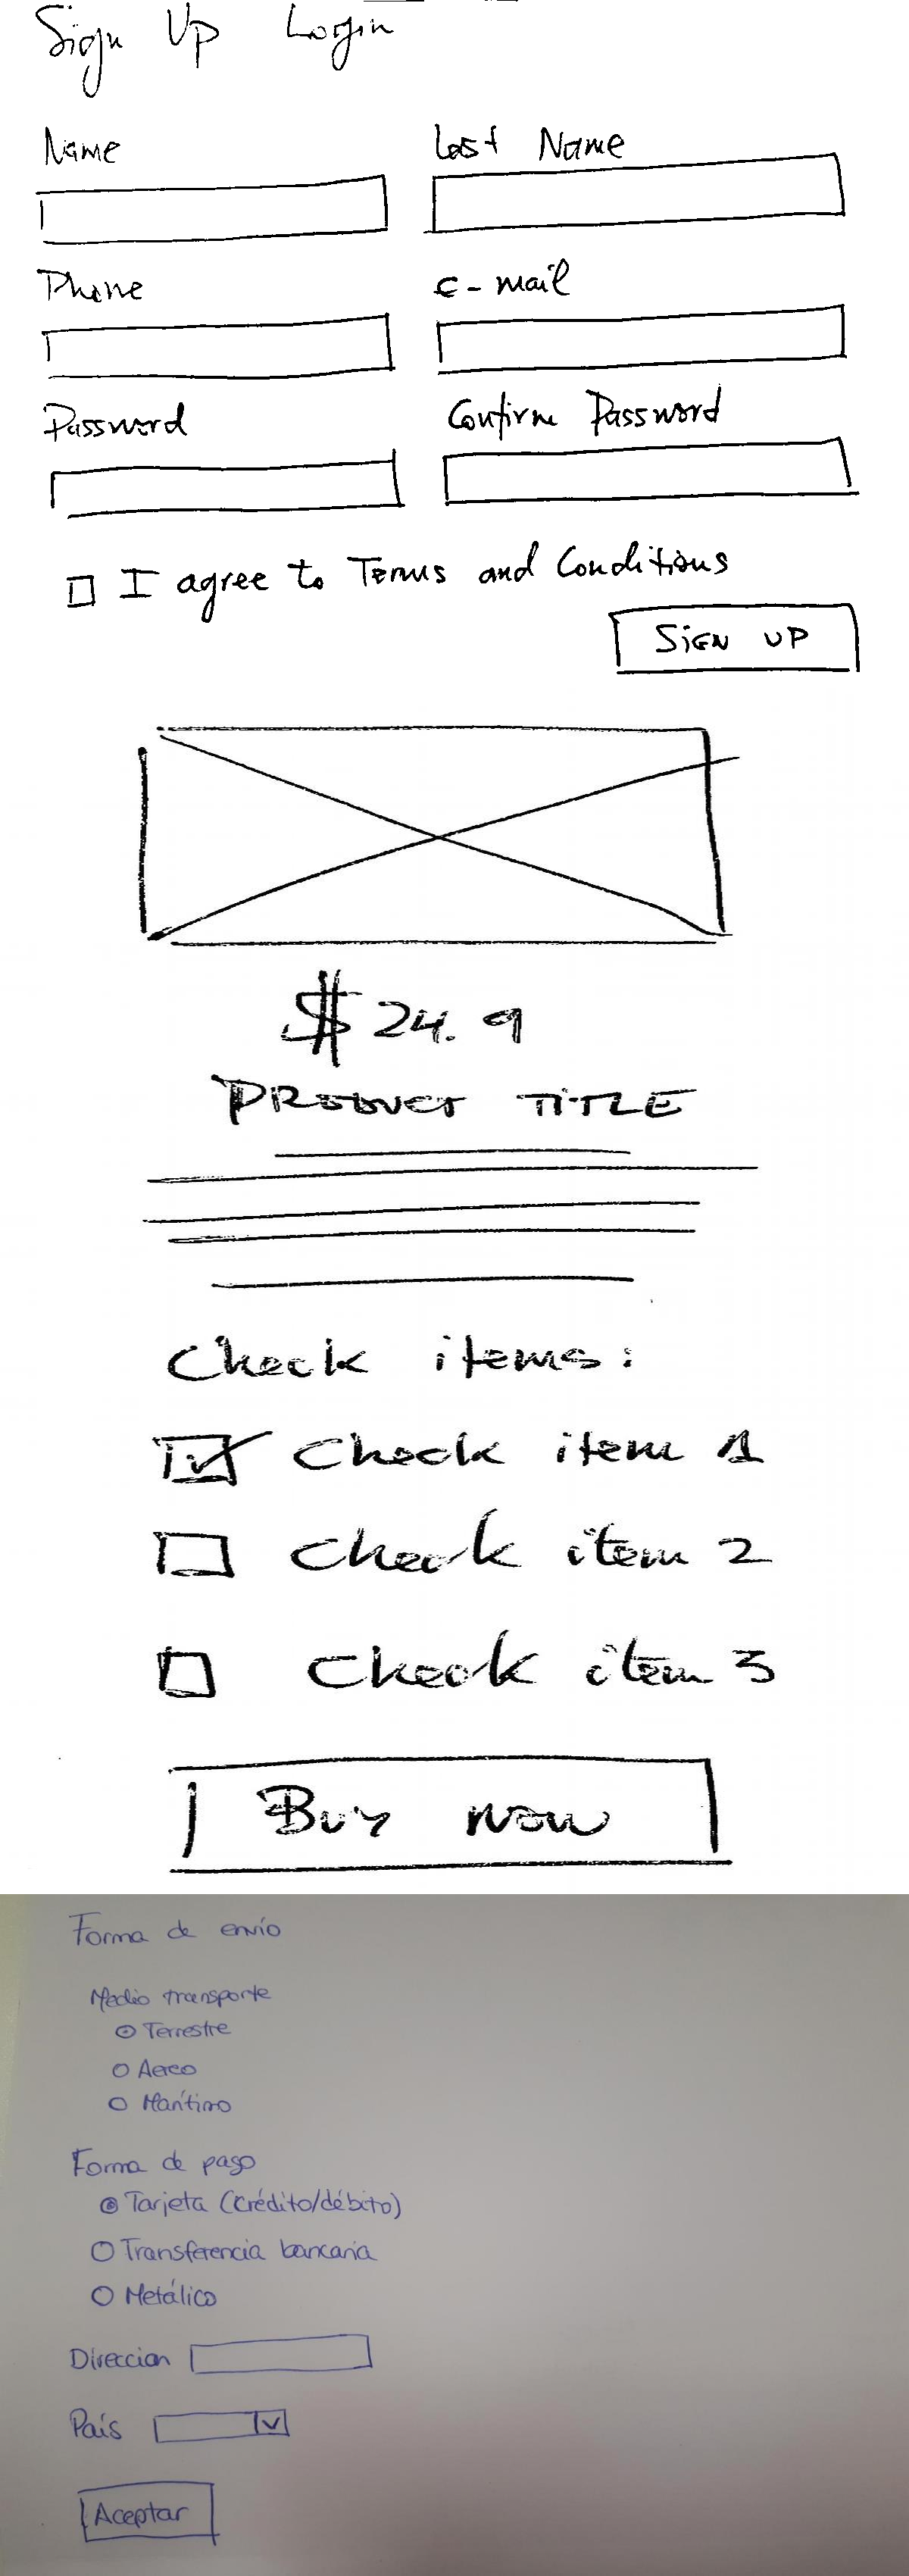 Sign Up Login
Name Last Name
Phone e-mail
Password Confirm Password
I agree to Terms and Conditions
SIGN UP
$24.9
PRODUCT TITLE
Check items:
Check item 1
Check item 2
Check item 3
Buy now
Forma de envío
Medio transporte
Terrestre
Aereo
Marítimo
Forma de pago
Tarjeta (crédito/débito)
Transferencia bancaria
Metálico
Direccion
País
Aceptar